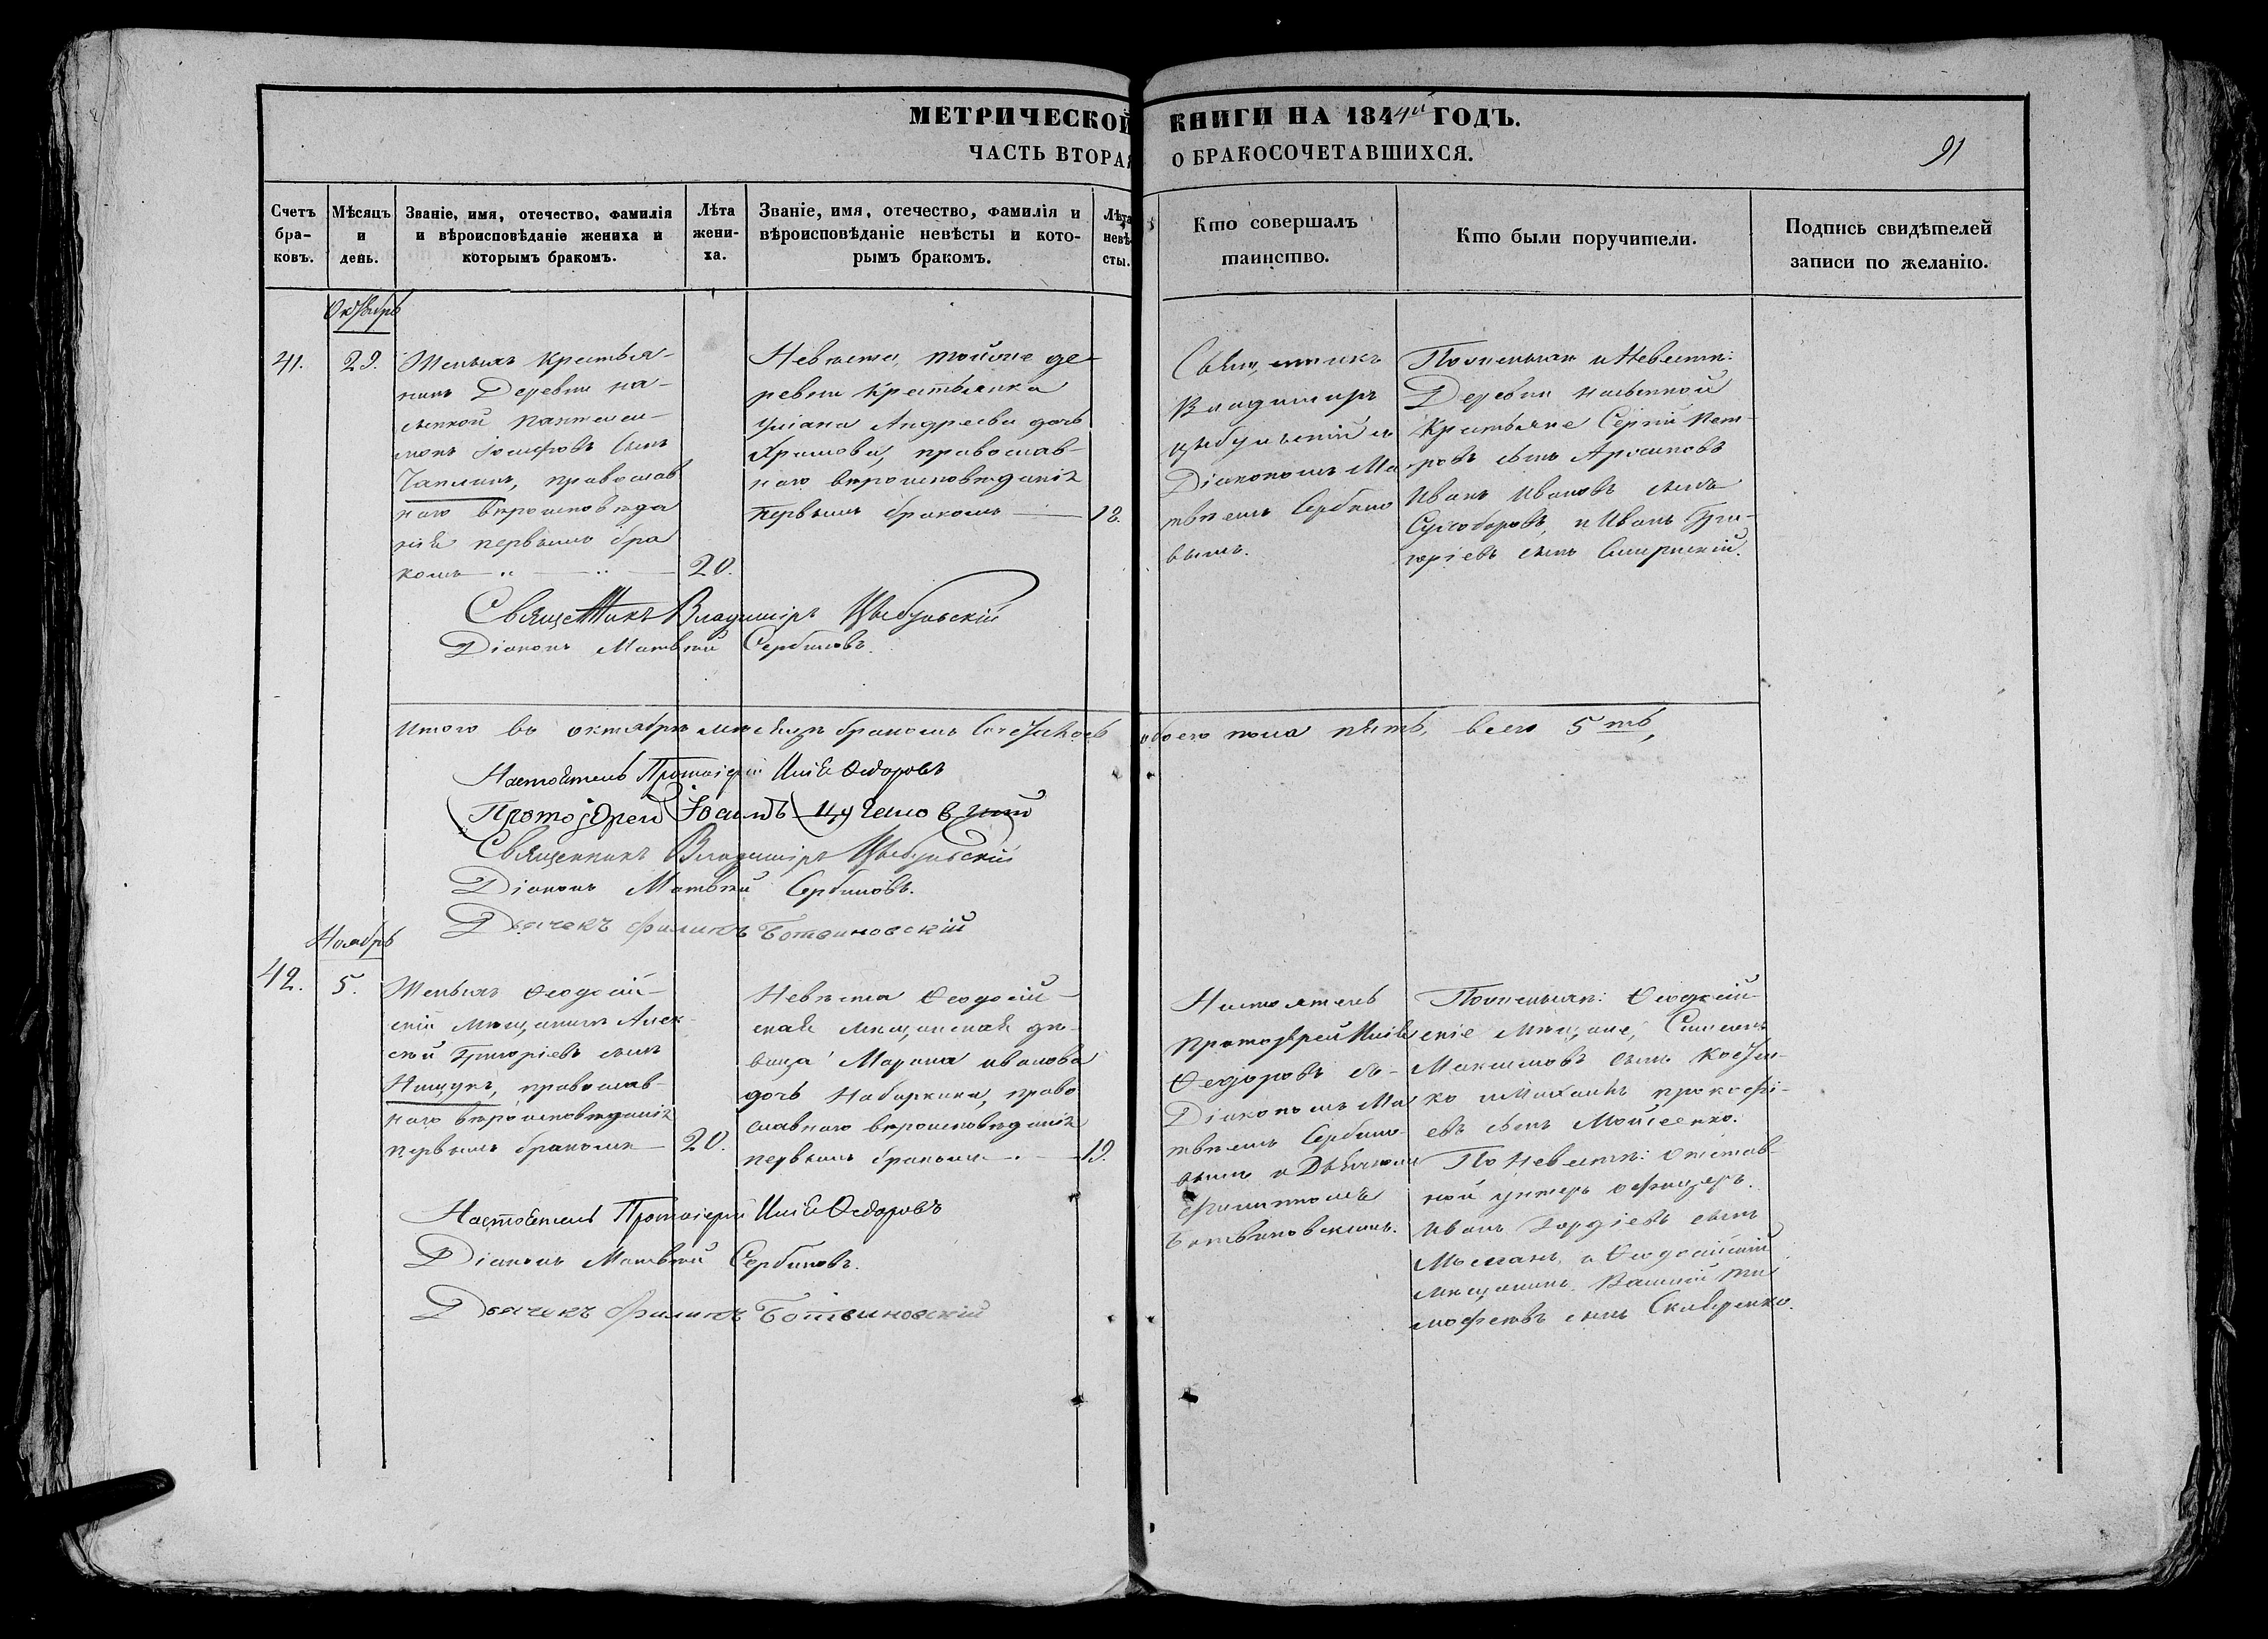 МЕТРИЧЕСКОЙ КНИГИ НА 1844й ГОДЪ.
ЧАСТЬ ВТОРАЯ О БРАКОСОЧЕТАВШИХСЯ.
91
Счетъ бра-
ковъ.
Мѣсяцъ
и
день.
Званіе, имя, отечество, фамилія
и вѣроисповѣданіе жениха и
которымъ бракомъ.
Лѣта
жени-
ха.
Званіе, имя, отечество, фамилія и
вѣроисповѣданіе невѣсты и кото-
рымъ бракомъ.
Лѣта
невѣ-
сты.
Кто совершалъ
таинство.
Кто были поручители.
Подпись свидѣтелей
записи по желанію.
Октябрь
41.
29.
Женихъ крестья-
нинъ Деревни
Пантелеи-
монъ Іосифовъ сынъ
Чаплинъ, православ
наго вѣроисповѣда
нія первымъ бра
комъ
20.
Невѣста, тойже де-
ревни крестьянка
Андреева дочь
православ-
наго вѣроисповѣданія
первымъ бракомъ
18.
Священникъ
Владиміръ
Цыбульскій съ
Діакономъ Ма
твѣемъ Сербино
вымъ.
По женихѣ и Невѣстѣ:
Деревни
Крестьяне Сергій Пет-
ровъ сынъ
Иванъ Ивановъ сынъ
и Иванъ Гри-
горіевъ сынъ
Священникъ Владиміръ Цыбульскій
Діаконъ Матвѣй Сербиновъ.
Итого въ октябрѣ мѣсяцѣ бракомъ обоего пола пять, всего 5ть,
Настоятель Протоіерей Илія Ѳедоровъ
Протоіерей Іоаннъ
Священникъ Владиміръ Цыбульскій
Діаконъ Матвѣй Сербиновъ.
Дьячекъ Филиппъ Ботвиновскій
Ноябрь
42.
5.
Женихъ Ѳеодосій-
скій мѣщанинъ Алек-
сѣй Григоріевъ сынъ
Нищукъ, православ-
наго вѣроисповѣданія
первымъ бракомъ
20.
Невѣста Ѳеодосій-
ская мѣщанская дѣ-
вица Марина Иванова
дочь Набиркина, право
славнаго вѣроисповѣданія
первымъ бракомъ
19.
Настоятель
Протоіерей Илія
Ѳедоровъ съ
Діакономъ Ма
твѣемъ Сербино-
вымъ и Дьячкомъ
Филиппомъ
Ботвиновскимъ.
По женихѣ: Ѳеодосій-
скіе мѣщане, Симеонъ
Максимовъ сынъ Костен-
ко и Михаилъ Прокофі-
евъ сынъ Мойсеенко.
По Невѣстѣ: отстав-
ной унтеръ офицеръ
Иванъ Гордіевъ сынъ
и Ѳеодосійскій
мѣщанинъ Василій Ти
мофеевъ сынъ Скляренко.
Настоятель Протоіерей Илія Ѳедоровъ
Діаконъ Матвѣй Сербиновъ.
Дьячекъ Филиппъ Ботвиновскій